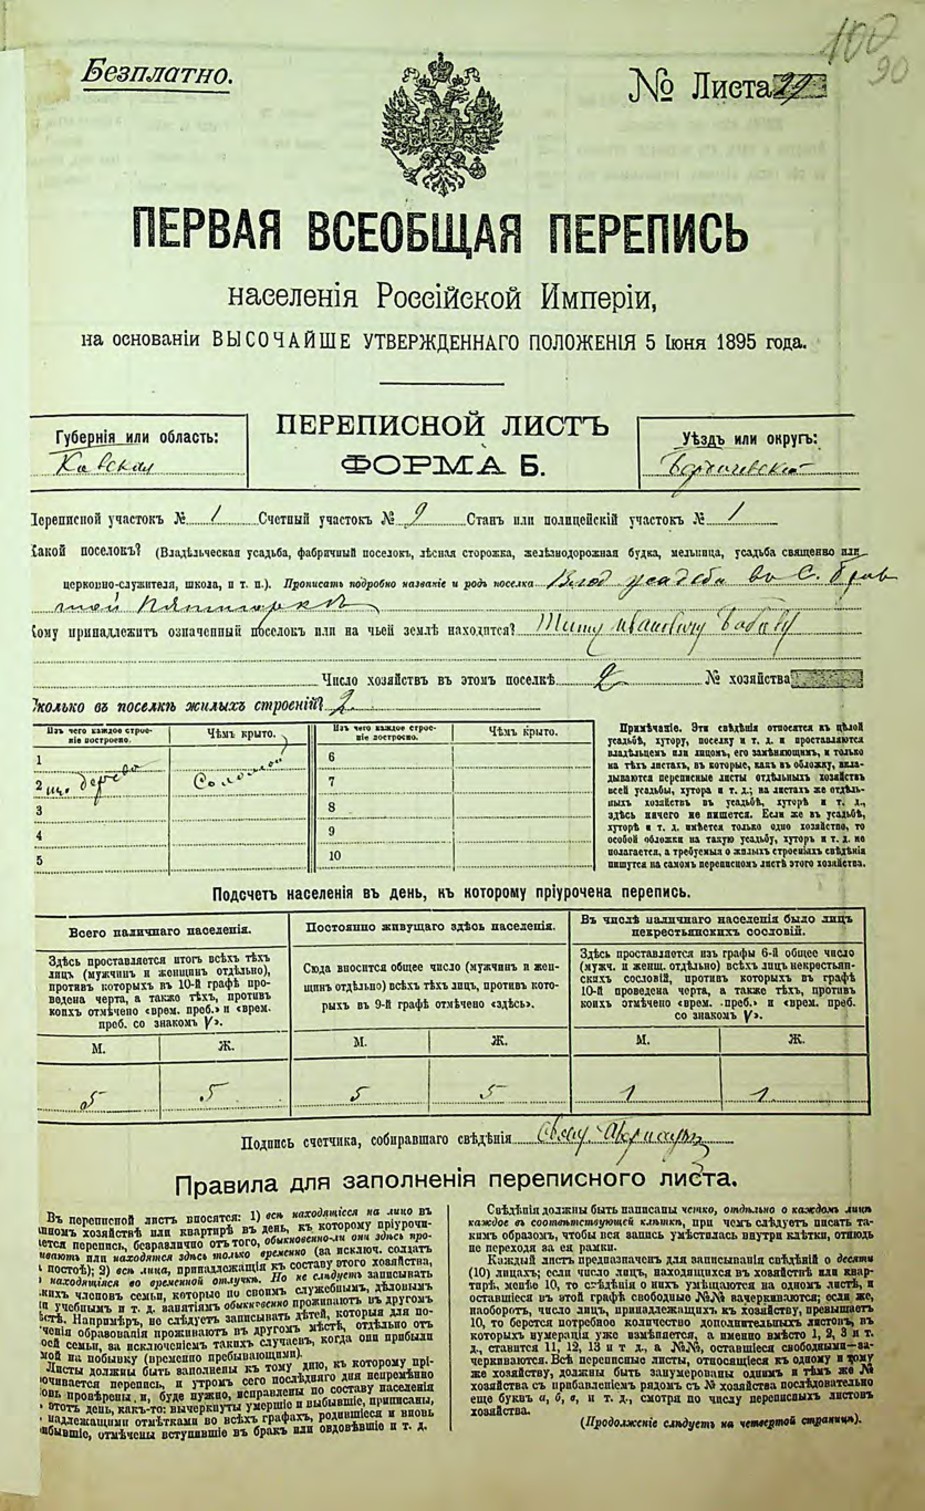 100
90
Безплатно.
№ Листа
ПЕРВАЯ ВСЕОБЩАЯ ПЕРЕПИСЬ
населенія Россійской Имперіи,
на основаніи ВЫСОЧАЙШЕ УТВЕРЖДЕННАГО ПОЛОЖЕНІЯ 5 Іюня 1895 года.
ПЕРЕПИСНОЙ ЛИСТЪ
ФОРМА Б.
Губернія или область:
Кіевская
Уѣздъ или округъ:
Бердичевскій
Переписной участокъ № 1 Счетный участокъ № 9 Станъ или полицейскій участокъ № 1
Какой поселокъ? (Владѣльческая усадьба, фабричный поселокъ, лѣсная сторожка, желѣзнодорожная будка, мельница, усадьба священно или
церковно-служителя, школа, и т. п.). Прописать подробно названіе и родъ поселка усадьба въ с.
Кому принадлежитъ означенный поселокъ или на чьей землѣ находится? Ивановичу
Число хозяйствъ въ этомъ поселкѣ 2 № хозяйства
Сколько въ поселкѣ жилыхъ строеній? 2
Изъ чего каждое строе-
ніе построено.
Чѣмъ крыто.
Изъ чего каждое строе-
ніе построено.
Чѣмъ крыто.
1
2 изъ дерева Соломой
3
4
5
6
7
8
9
10
Примѣчаніе. Эти свѣдѣнія относятся къ цѣлой
усадьбѣ, хутору, поселку и т. д. и проставляются
владѣльцемъ или лицомъ, его замѣняющимъ, и только
на тѣхъ листахъ, въ которые, какъ въ обложку, вкла-
дываются переписные листы отдѣльныхъ хозяйствъ
всей усадьбы, хутора и т. д.; на листахъ же отдѣль-
ныхъ хозяйствъ въ усадьбѣ, хуторѣ и т. д.,
здѣсь ничего не пишется. Если же въ усадьбѣ,
хуторѣ и т. д. имѣется только одно хозяйство, то
особой обложки на такую усадьбу, хуторъ и т. д. не
полагается, а требуемыя о жилыхъ строеніяхъ свѣдѣнія
пишутся на самомъ переписномъ листѣ этого хозяйства.
Подсчетъ населенія въ день, къ которому пріурочена перепись.
Всего наличнаго населенія.
Здѣсь проставляется итогъ всѣхъ тѣхъ
лицъ (мужчинъ и женщинъ отдѣльно),
противъ которыхъ въ 10-й графѣ про-
ведена черта, а также тѣхъ, противъ
коихъ отмѣчено «врем. преб.» и «врем.
преб. со знакомъ V».
Постоянно живущаго здѣсь населенія.
Сюда вносится общее число (мужчинъ и жен-
щинъ отдѣльно) всѣхъ тѣхъ лицъ, противъ кото-
рыхъ въ 9-й графѣ отмѣчено «здѣсь».
Въ числѣ наличнаго населенія было лицъ
некрестьянскихъ сословій.
Здѣсь проставляется изъ графы 6-й общее число
(мужч. и женщ. отдѣльно) всѣхъ лицъ некрестьян-
скихъ сословій, противъ которыхъ въ графѣ
10-й проведена черта, а также тѣхъ, противъ
коихъ отмѣчено «врем. преб.» и «врем. преб.
со знакомъ V».
М. Ж. М. Ж. М. Ж.
5 5 5 5 1 1
Подпись счетчика, собиравшаго свѣдѣнія
Правила для заполненія переписного листа.
Въ переписной листъ вносятся: 1) всѣ находящіеся на лицо въ
нномъ хозяйствѣ или квартирѣ въ день, къ которому пріурочи-
ается перепись, безразлично отъ того, обыкновенно-ли они здѣсь про-
живаютъ или находятся здѣсь только временно (за исключ. солдатъ
постоѣ); 2) всѣ лица, принадлежащія къ составу этого хозяйства,
находящіяся во временной отлучкѣ. Но не слѣдуетъ записывать
кихъ членовъ семьи, которые по своимъ служебнымъ, дѣловымъ
и учебнымъ и т. д. занятіямъ обыкновенно проживаютъ въ другомъ
ѣстѣ. Напримѣръ, не слѣдуетъ записывать дѣтей, которыя для по-
ченія образованія проживаютъ въ другомъ мѣстѣ, отдѣльно отъ
оей семьи, за исключеніемъ такихъ случаевъ, когда они прибыли
мой на побывку (временно пребывающими).
Листы должны быть заполнены къ тому дню, къ которому прі-
очивается перепись, и утромъ сего послѣдняго дня непремѣнно
овь провѣрены и, буде нужно, исправлены по составу населенія
этотъ день, какъ-то: вычеркнуты умершіе и выбывшіе, приписаны,
надлежащими отмѣтками во всѣхъ графахъ, родившіеся и вновь
ибывшіе, отмѣчены вступившіе въ бракъ или овдовѣвшіе и т. д.
Свѣдѣнія должны быть написаны четко, отдѣльно о каждомъ лицѣ
каждое въ соотвѣтствующей клѣткѣ, при чемъ слѣдуетъ писать та-
кимъ образомъ, чтобы вся запись умѣстилась внутри клѣтки, отнюдь
не переходя за ея рамки.
Каждый листъ предназначенъ для записыванія свѣдѣній о десяти
(10) лицахъ; если число лицъ, находящихся въ хозяйствѣ или квар-
тирѣ, менѣе 10, то свѣдѣнія о нихъ умѣщаются на одномъ листѣ, и
оставшіеся въ этой графѣ свободные №№ вачеркиваются; если же,
наоборотъ, число лицъ, принадлежащихъ къ хозяйству, превышаетъ
10, то берется потребное количество дополнительныхъ листовъ, въ
которыхъ нумерація уже измѣняется, а именно вмѣсто 1, 2, 3 и т.
д., ставится 11, 12, 13 и т д., а №№, оставшіеся свободными—за-
черкиваются. Всѣ переписные листы, относящіеся къ одному и тому
же хозяйству, должны быть занумерованы однимъ и тѣмъ же №
хозяйства съ прибавленіемъ рядомъ съ № хозяйства послѣдовательно
еще буквъ а, б, в, и т. д., смотря по числу переписныхъ листовъ
хозяйства.
(Продолженіе слѣдуетъ на четвертой страницѣ).